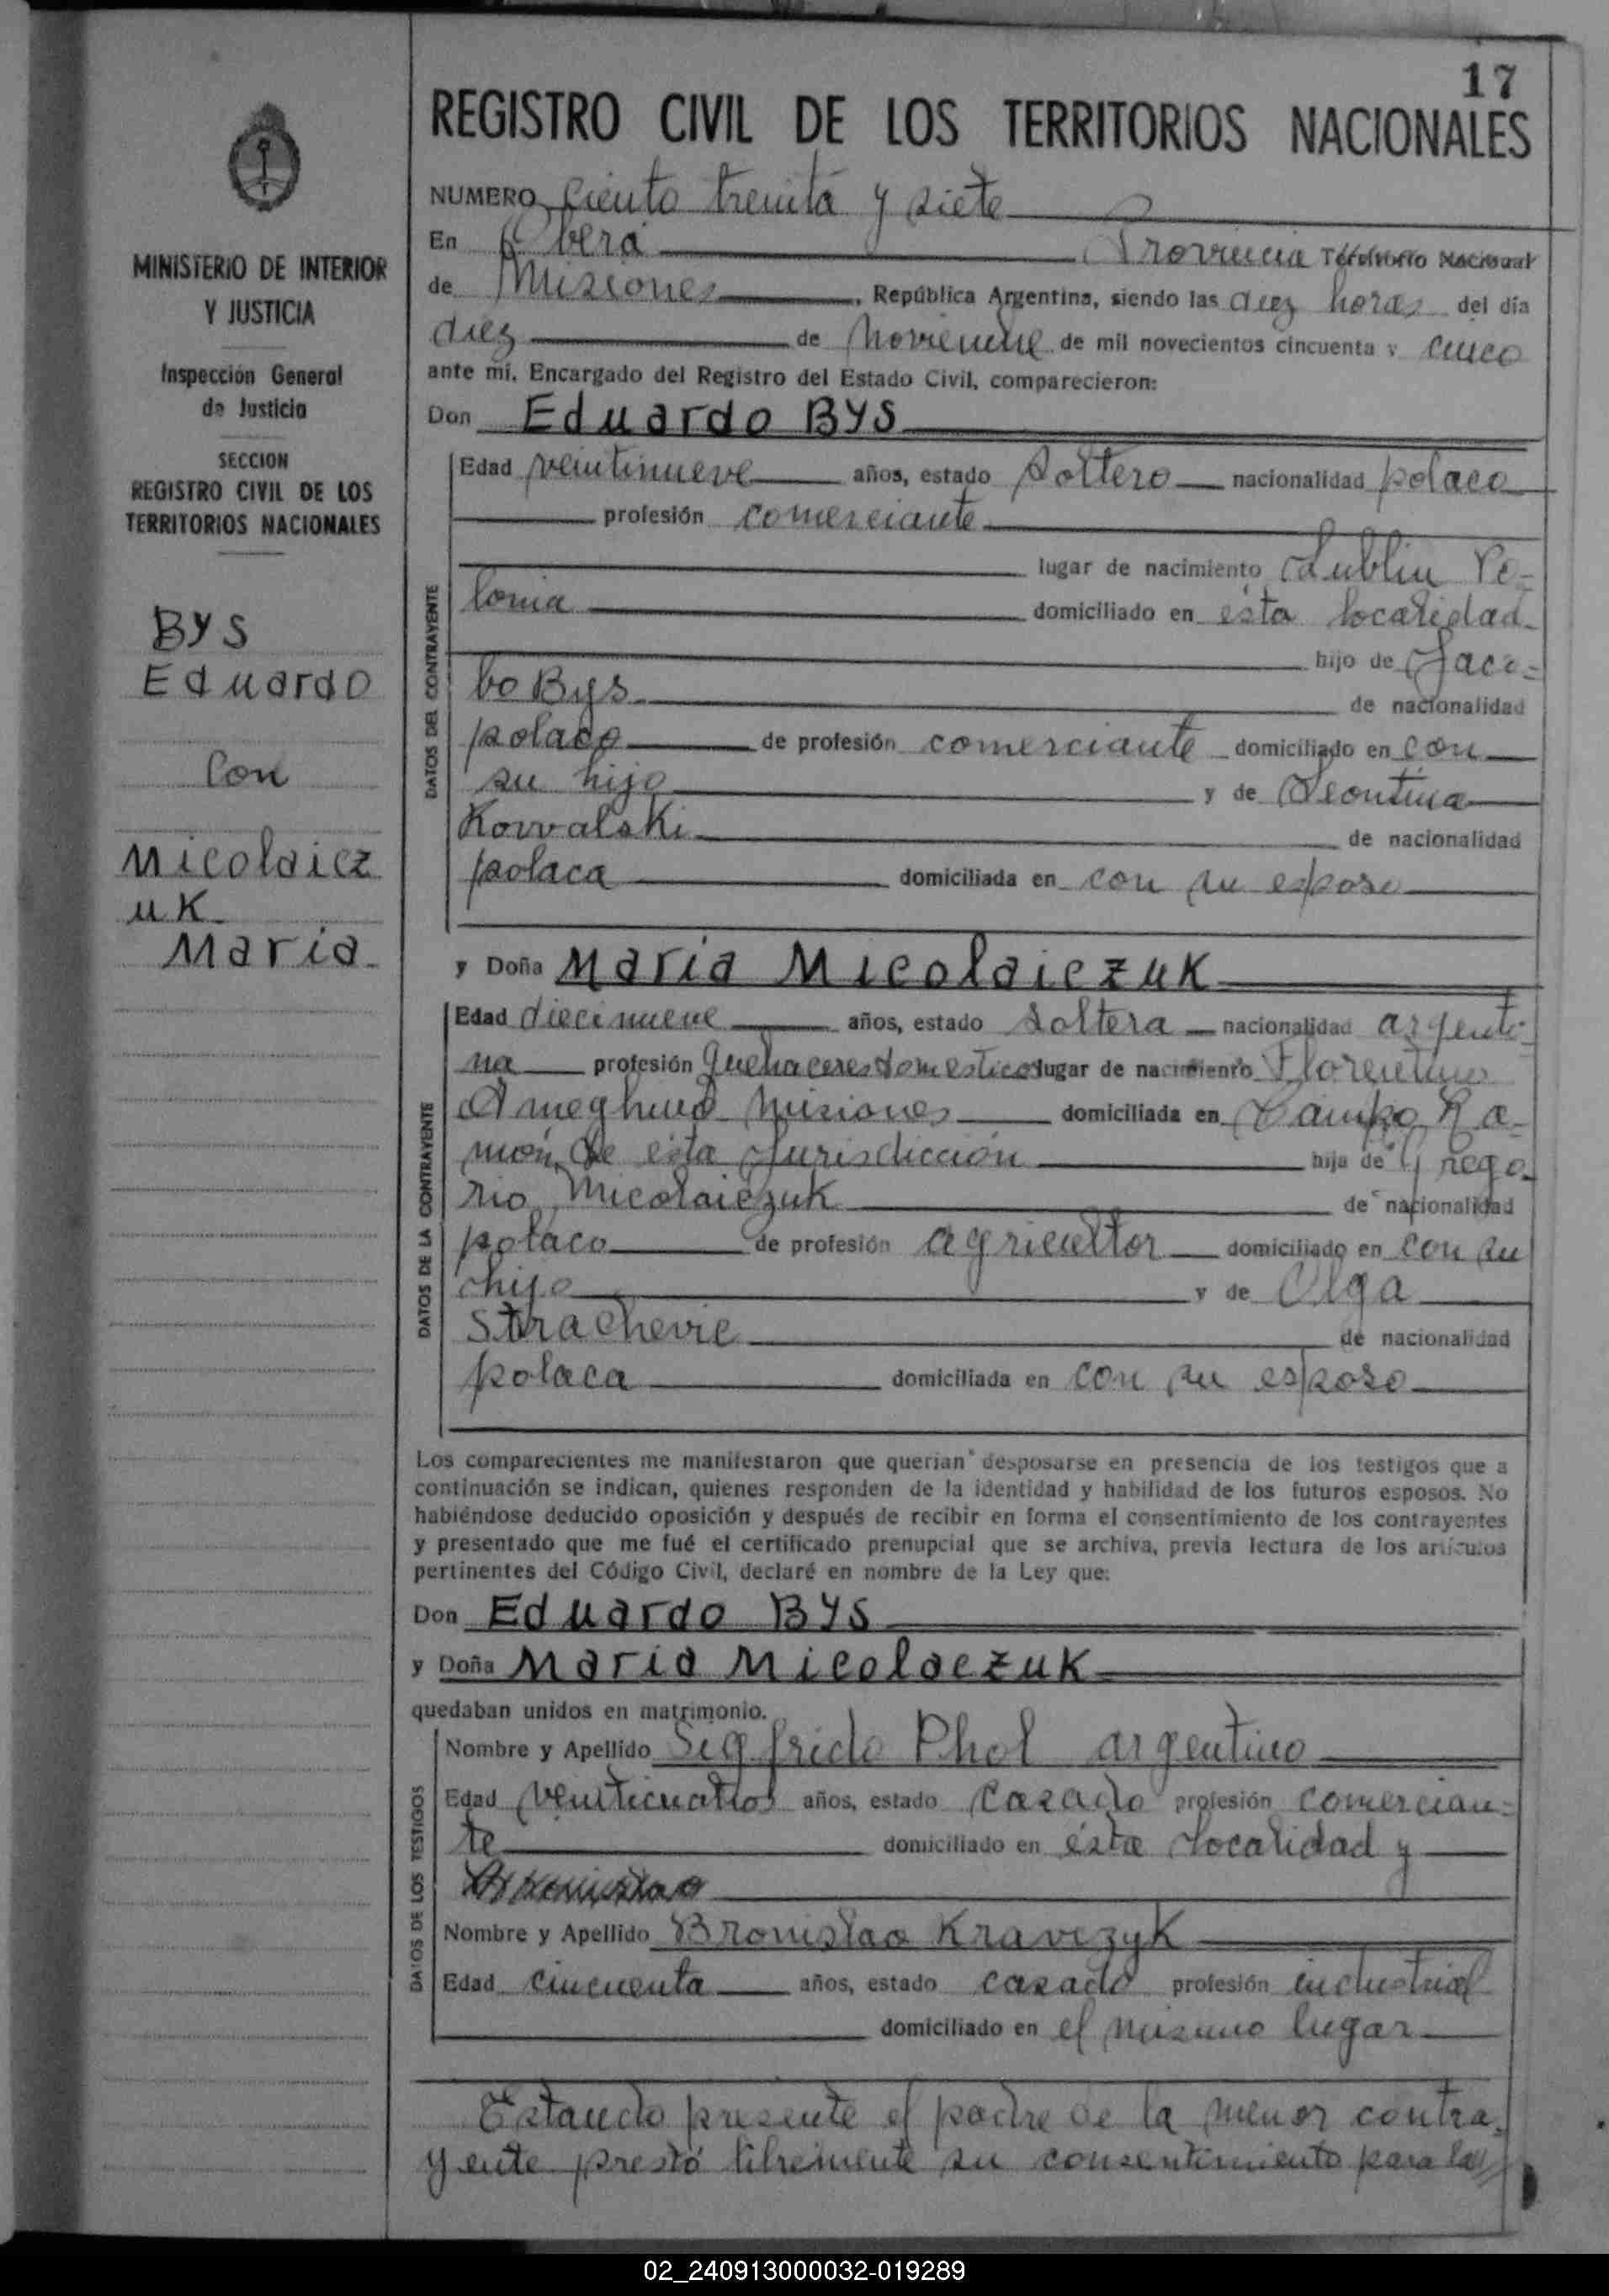 17
REGISTRO CIVIL DE LOS TERRITORIOS NACIONALES
MINISTERIO DE INTERIOR
Y JUSTICIA
Inspección General
de Justicia
SECCION
REGISTRO CIVIL DE LOS
TERRITORIOS NACIONALES
BYS
Eduardo
Con
Micolaicz
uk
Maria
NUMERO Ciento treinta y siete
En Oberá Provincia Territorio Nacional
de Misiones, República Argentina, siendo las diez horas del día
diez de Noviembre de mil novecientos cincuenta y cinco
ante mí, Encargado del Registro del Estado Civil, comparecieron:
Don Eduardo BYS
DATOS DEL CONTRAYENTE
Edad veintinueve años, estado Soltero nacionalidad polaco
profesión comerciante
lugar de nacimiento Lublin Po-
lonia domiciliado en ésta localidad
hijo de Jaco-
bo Bys de nacionalidad
polaco de profesión comerciante domiciliado en con
su hijo y de Leontina
Kowalski de nacionalidad
polaca domiciliada en con su esposo
y Doña Maria Micolaiczuk
DATOS DE LA CONTRAYENTE
Edad diecinueve años, estado Soltera nacionalidad argenti-
na profesión Quehaceres domesticos lugar de nacimiento Florentino
Ameghino Misiones domiciliada en Campo Ra-
món, de ésta Jurisdicción hija de Grego-
rio Micolaiczuk de nacionalidad
polaco de profesión agricultor domiciliado en con su
hijo y de Olga
Strachevic de nacionalidad
polaca domiciliada en con su esposo
Los comparecientes me manifestaron que querían desposarse en presencia de los testigos que a
continuación se indican, quienes responden de la identidad y habilidad de los futuros esposos. No
habiéndose deducido oposición y después de recibir en forma el consentimiento de los contrayentes
y presentado que me fué el certificado prenupcial que se archiva, previa lectura de los artículos
pertinentes del Código Civil, declaré en nombre de la Ley que:
Don Eduardo BYS
y Doña Maria Micolaczuk
quedaban unidos en matrimonio.
DATOS DE LOS TESTIGOS
Nombre y Apellido Sigfrido Phol argentino
Edad veinticuatro años, estado casado profesión comercian-
te domiciliado en ésta localidad y
Nombre y Apellido Bronislao Kravczyk
Edad cincuenta años, estado casado profesión industrial
domiciliado en el mismo lugar
Estando presente el padre de la menor contra-
yente prestó libremente su consentimiento para la
02_240913000032-019289